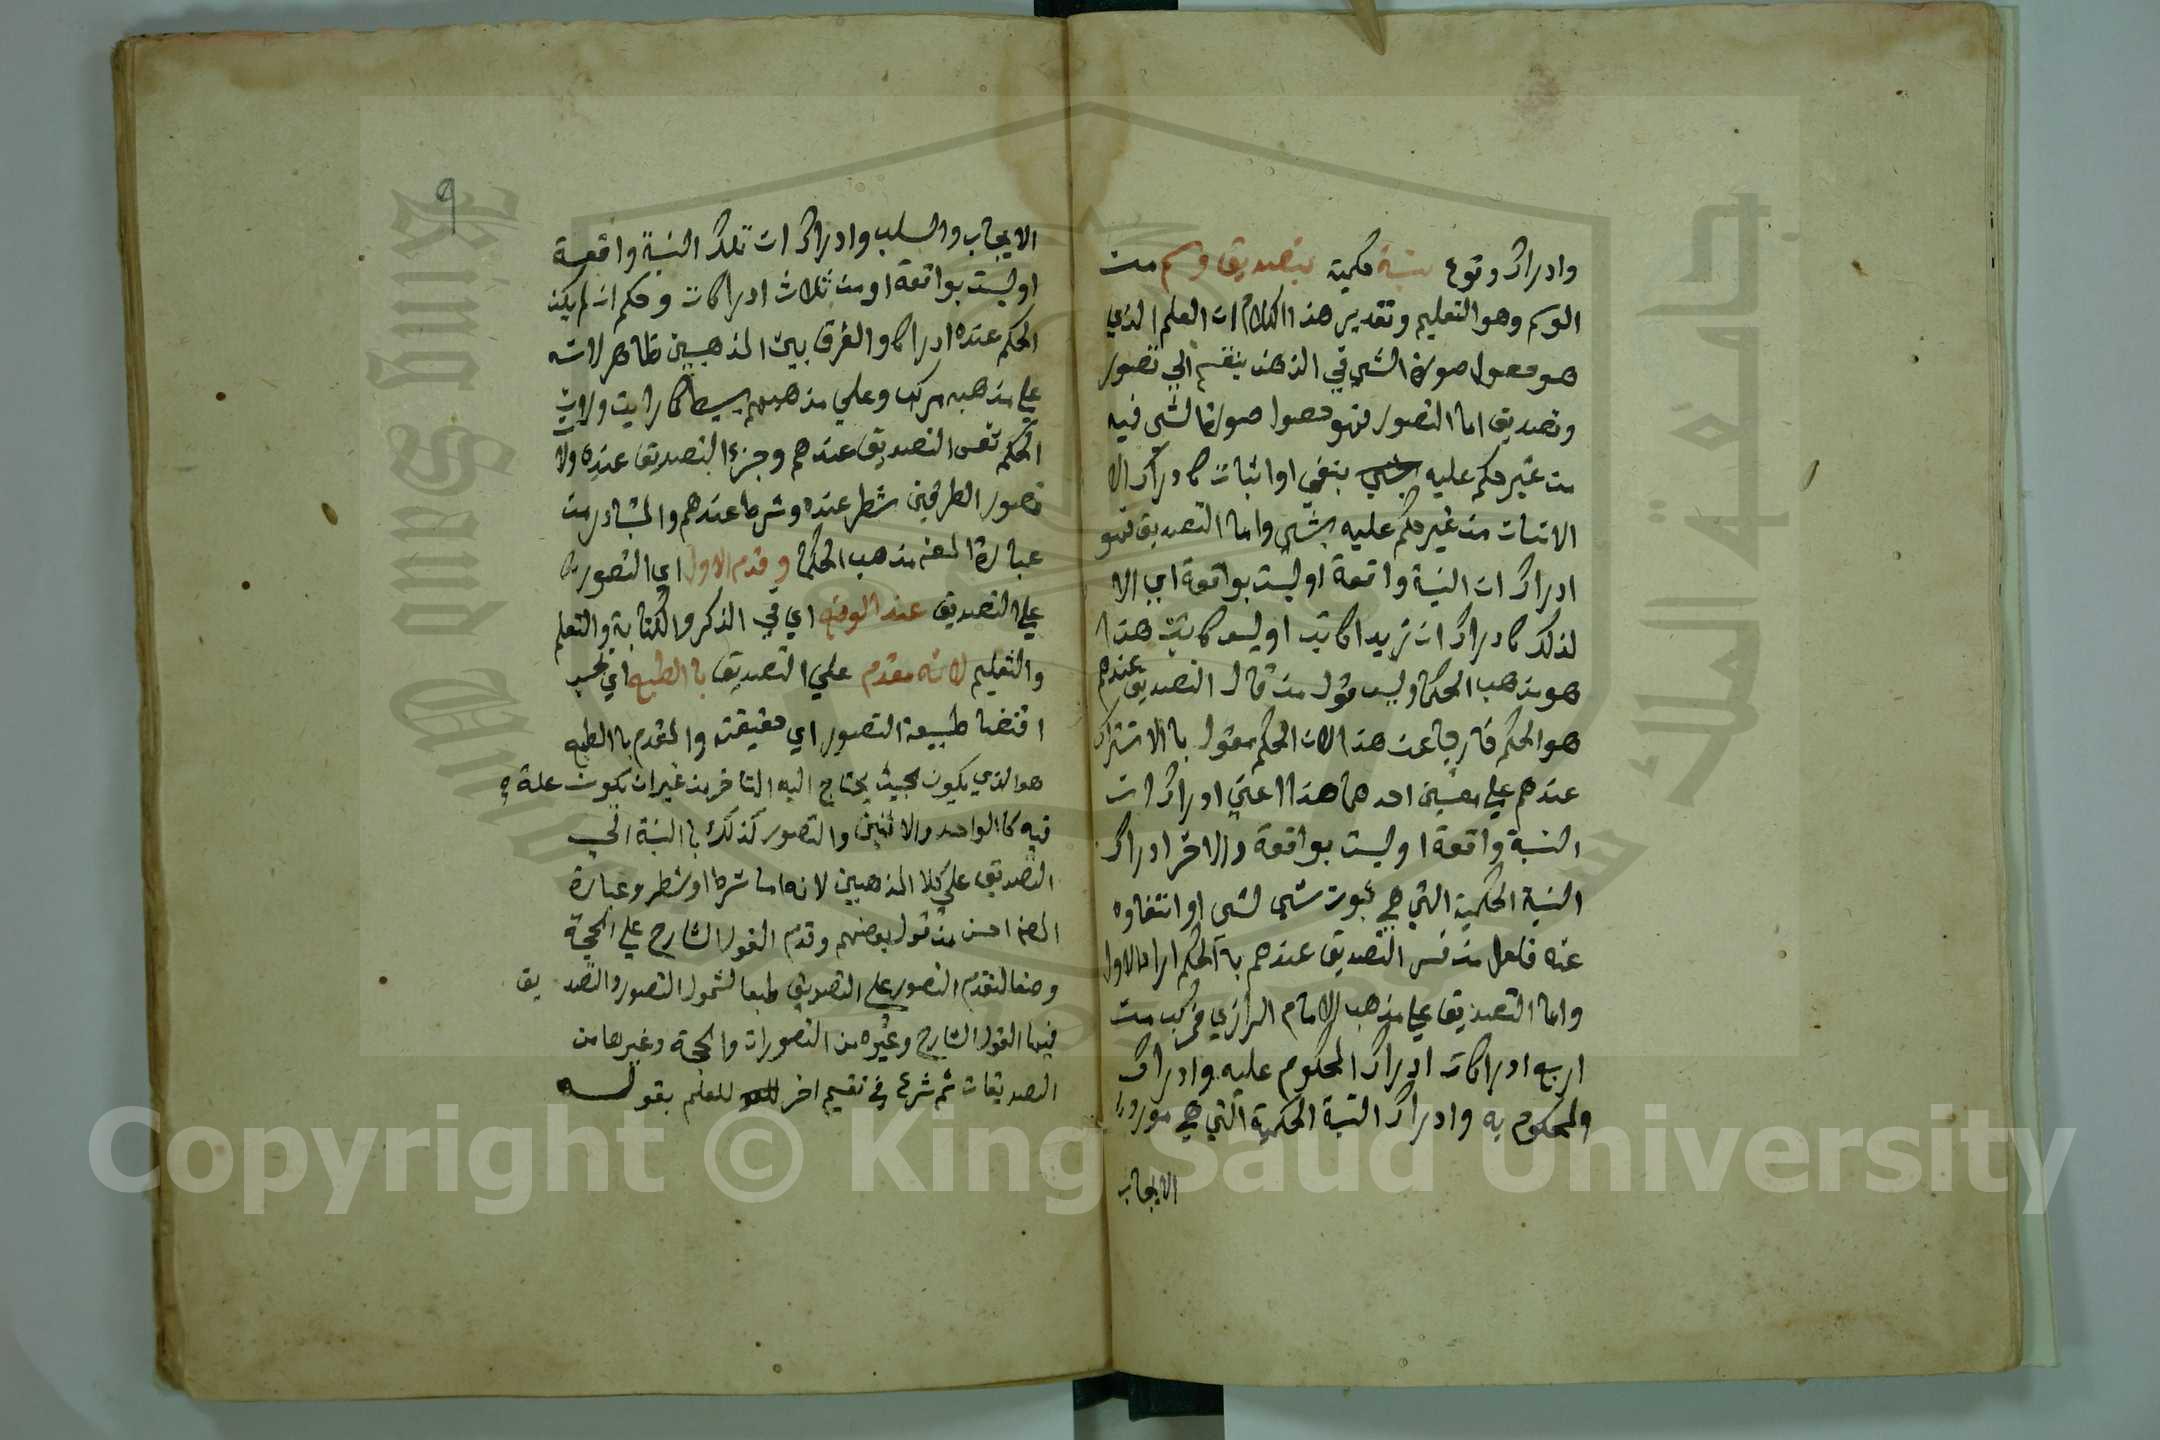 وادراك وقوع نسبة حكمية بتصديق وسم من
الوسم وهو التعليم وتقدير هذا الكلام ان العلم الذي
هو حصول صورة الشي في الذهن ينقسم الي تصور
وتصديق اما التصور فهو حصول صورة الشي فيه
من غير حكم عليه بنفي او اثبات كادراك الا
الانسان من غير حكم عليه بشي واما التصديق فهو
ادراك ان النسبة واقعة او ليست بواقعة اي الا
لذلك كادراك ان زيدا كاتب او ليس كاتب هذا
هو مذهب الحكما وليس قول من قال التصديق عندهم
هو الحكم خارجا عن هذا لان الحكم مقول بالاشتراك
عندهم علي معنيين احدهما هذا اعني ادراك ان
النسبة واقعة او ليست بواقعة والاخر ادراك
النسبة الحكمية التي هي ثبوت شي لشي او انتفاوه
عنه فلعل من فسر التصديق عندهم بالحكم اراد الاول
واما التصديق علي مذهب الامام الرازي فمركب من
اربع ادراكات ادراك المحكوم عليه وادراك
والمحكوم به وادراك النسبة الحكمية التي هي مورد
الايجاب
٩
الايجاب والسلب وادراك ان تلك النسبة واقعة
او ليست بواقعة او من ثلاث ادراكات وحكم ان لم يكن
الحكم عنده ادراكا والفرق بين المذهبين ظاهر لانه
علي مذهبه مركب وعلي مذهبهم بسيط كما رايت ولان
الحكم نفس التصديق عندهم وجزء التصديق عنده ولان
تصور الطرفين شطر عنده وشرط عندهم والمتبادر من
عبارة المصنه مذهب الحكما وقدم الاول اي التصور
علي التصديق عند الوضع اي في الذكر والكتابة والتعلم
والتعليم لانه مقدم علي التصديق بالطبع اي بحسب
اقتضا طبيعة التصور اي حقيقته والمقدم بالطبع
هو الذي يكون بحيث يحتاج اليه المتاخر من غير ان يكون علة
فيه كالواحد والاثنين والتصور كذلك بالنسبة الي
التصديق علي كلا المذهبين لانه اما شرط او شطر وعبارة
المصنه احسن من قول بعضهم وقدم القول الشارح علي الحجة
وضعا لتقدم التصور علي التصديق طبعا لشمول التصور والتصديق
فيها القول الشارح وغيره من التصورات والحجة وغيرها من
التصديقات ثم شرع في تقسيم اخر للعلم بقوله
Copyright © King Saud University